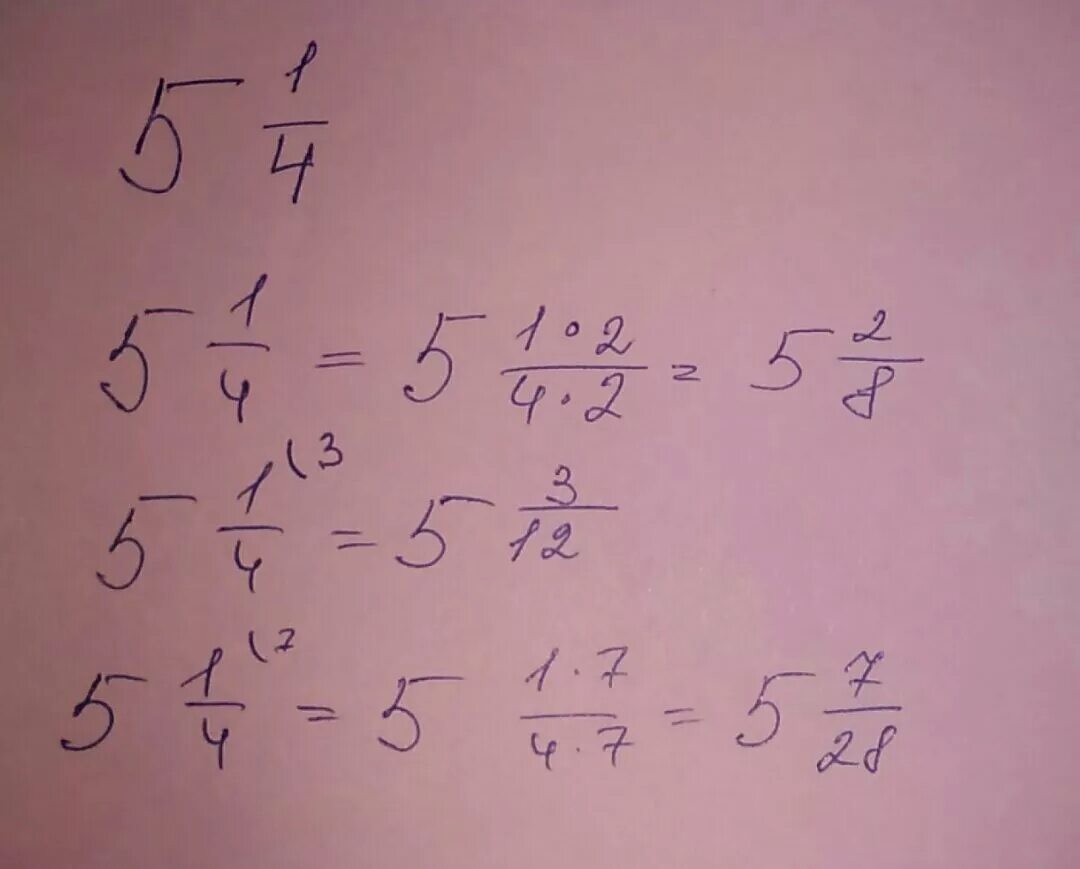 5 1/4
5 1/4 = 5 1·2/4·2 = 5 2/8
5 1/4 (3 = 5 3/12
5 1/4 (7 = 5 1·7/4·7 = 5 7/28